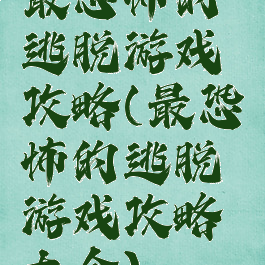 最恐怖的
逃脱游戏
攻略(最恐
怖的逃脱
游戏攻略
大全)